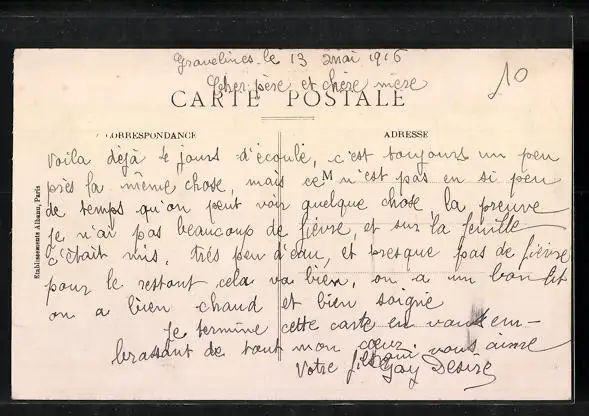 Gravelines le 13 mai 1916
10
Cher père et chère mère
CARTE POSTALE
CORRESPONDANCE
ADRESSE
Voila déjà 4 jours d'écoulé, c'est toujours un peu
près la même chose, mais ce M n'est pas en si peu
de temps qu'on peut voir quelque chose, la preuve
je n'ai pas beaucoup de fièvre, et sur la feuille
c'était mis, très peu d'eau, et presque pas de fièvre
pour le restant cela va bien, on a un bon lit
on a bien chaud et bien soigné
Je termine cette carte en vous em-
brassant de tout mon cœur
Votre fils qui vous aime
Gay Désiré
Etablissements Albanu, Paris